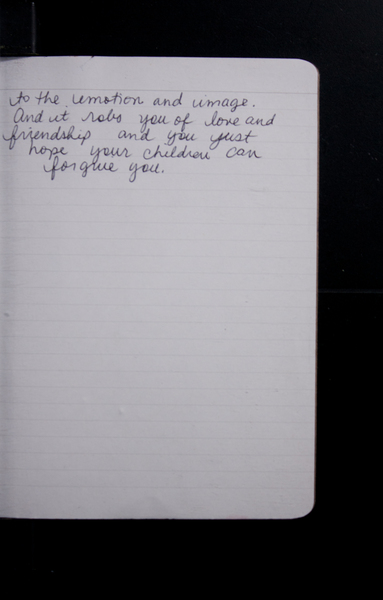 to the emotion and image.
And it robs you of love and
friendship and you just
hope your children can
forgive you.